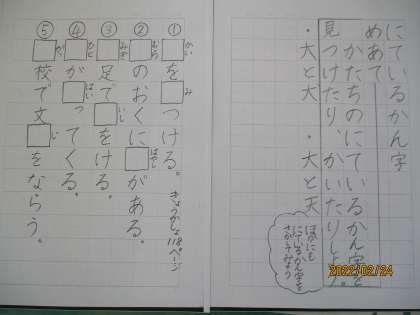 にているかん字
めあて
かたちのにているかん字を
見つけたり、かいたりしよう。
・大と犬 ・大と天
ほかにも
にているかん字を
さがそう
① かい□をみ□つける。
きょうかしょ118ページ
② むら□のおくにはやし□がある。
③ みぎ□足でいし□をける。
④ ひと□がはい□ってくる。
⑤ がっ□校で文じ□をならう。
2022/02/24